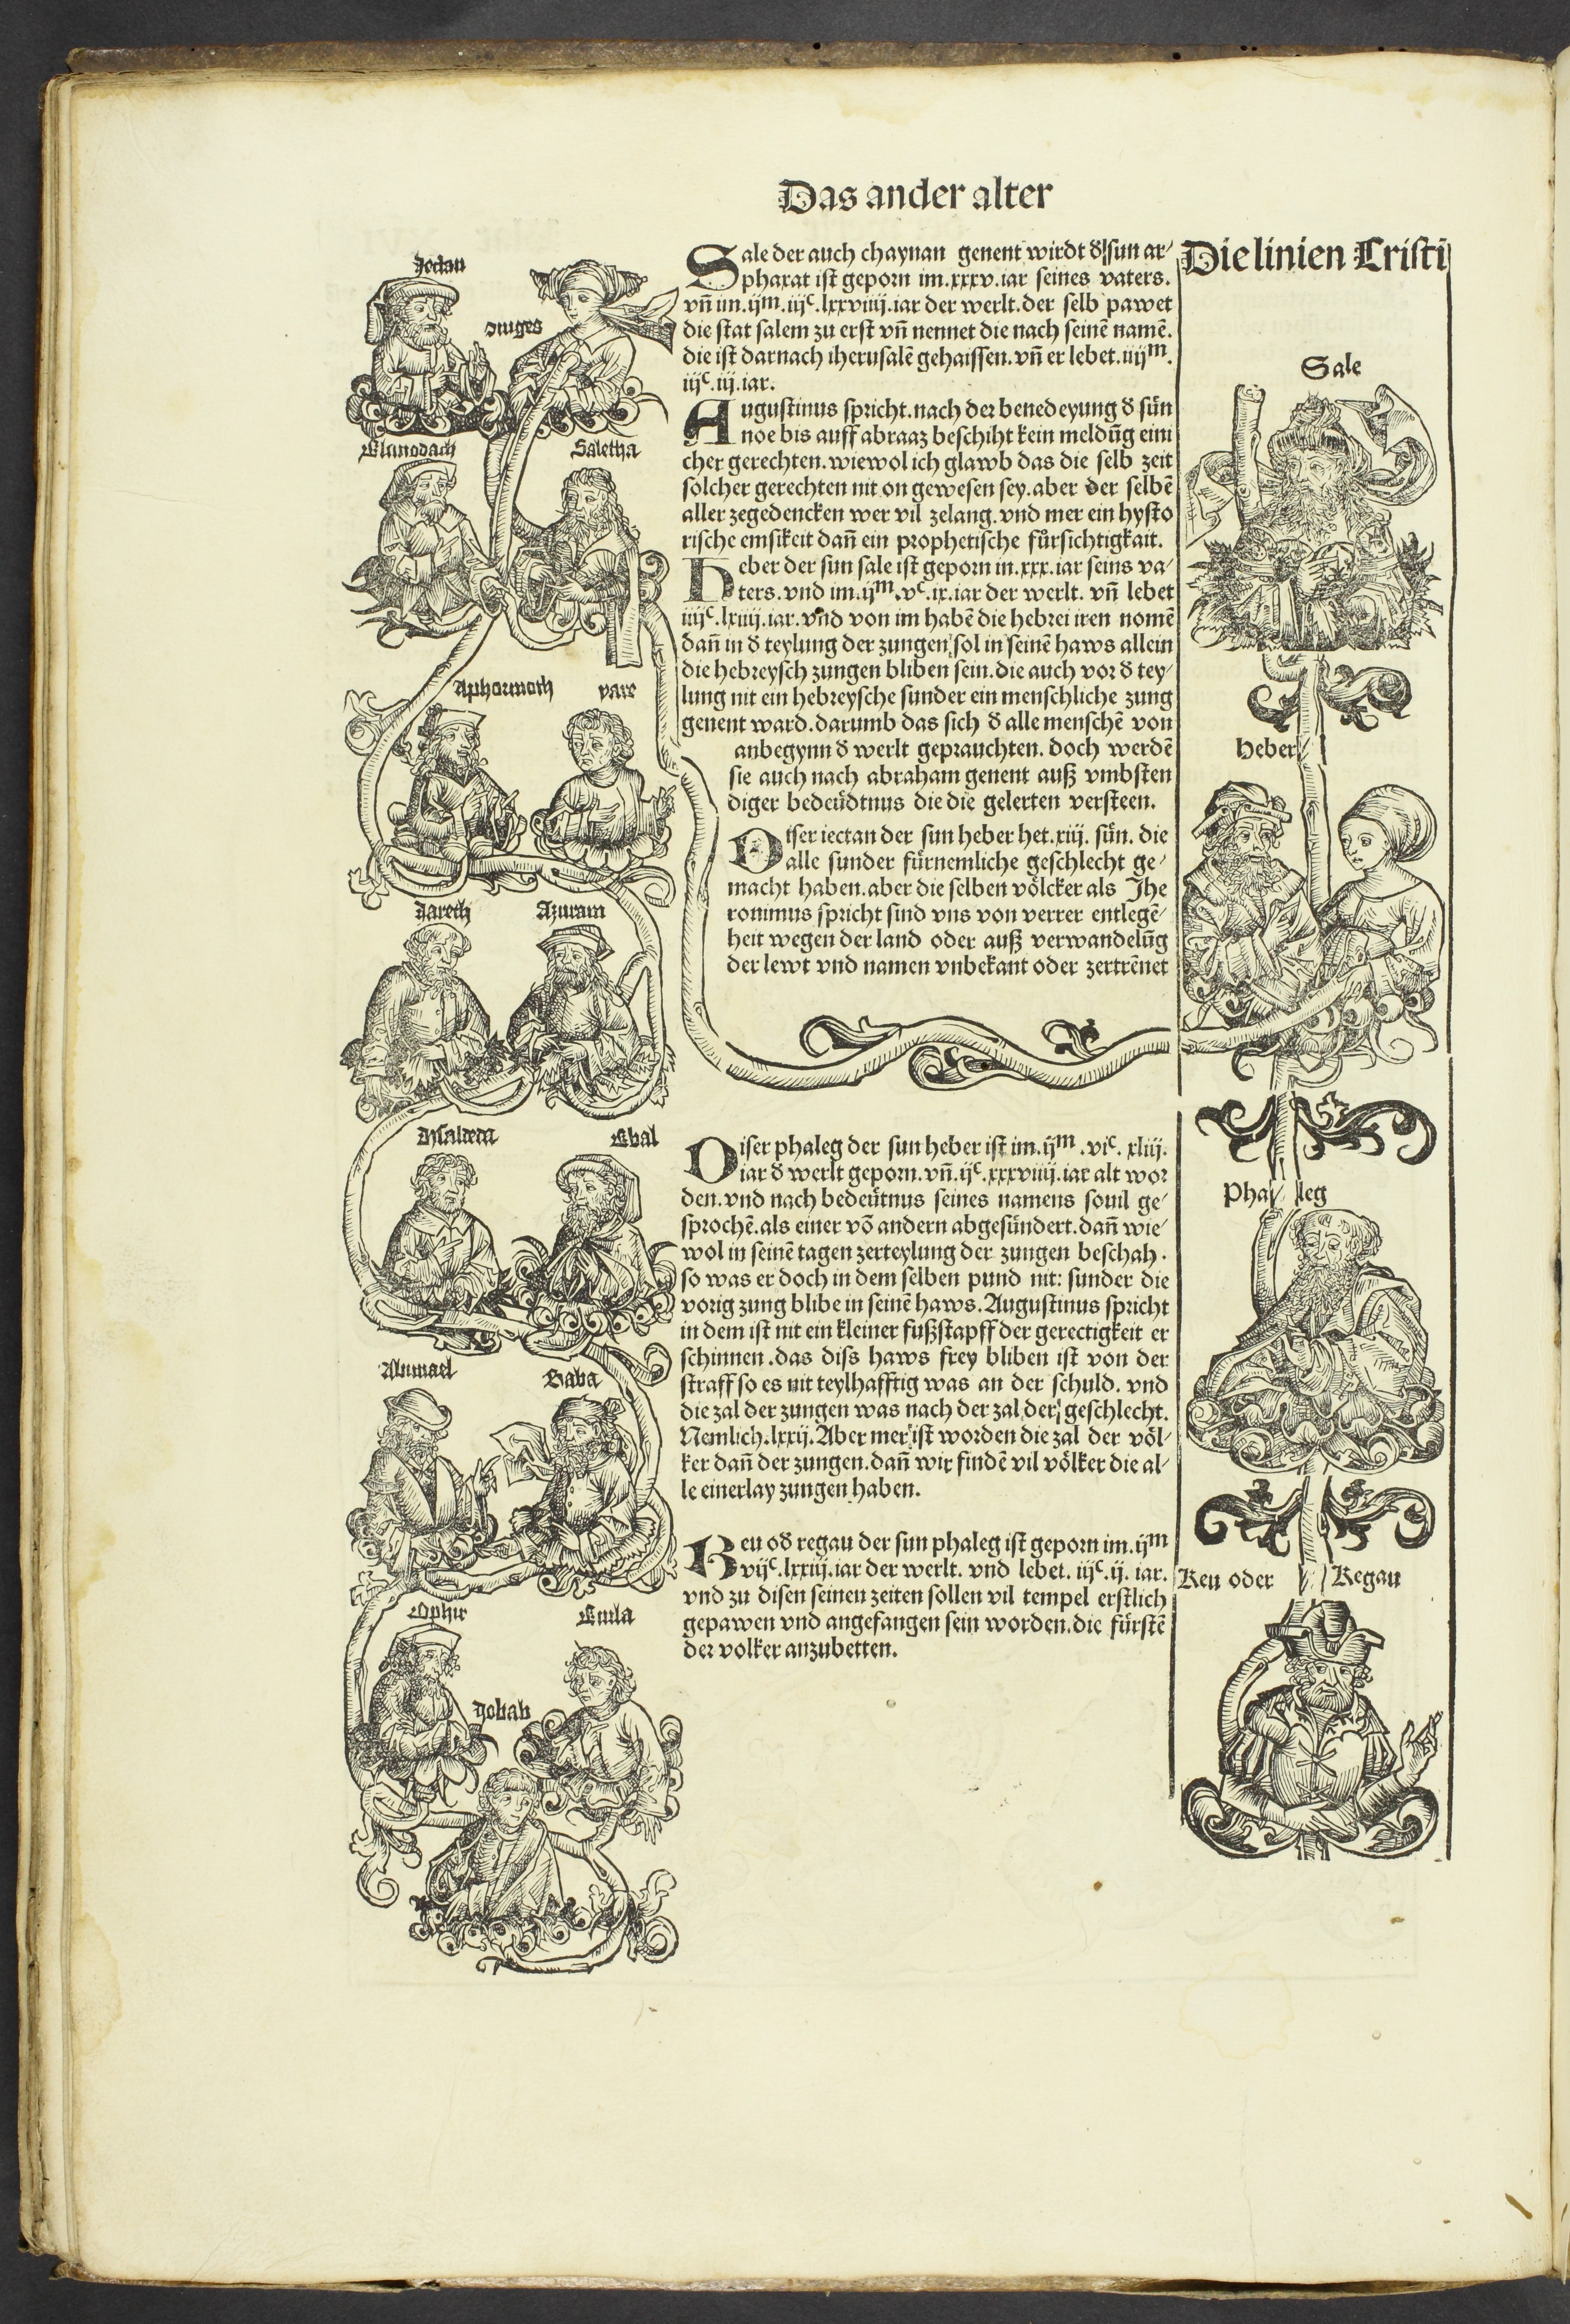 Das ander alter
Sale der auch chaynan genent wirdt d̕ sun ar⸗
phaxat ist geporn im.xxxv.iar seines vaters.
vñ im.ijᵐ.iijᶜ.lxxviiij.iar der werlt.der selb pawet
die stat salem zu erst vñ nennet die nach seinē namē.
die ist darnach iherusalē gehaissen.vñ er lebet.iiijᵐ.
iijᶜ.iij.iar.
Augustinus spricht.nach der benedeyung d̕ sün
noe bis auff abraaz beschiht kein meldūg eini
cher gerechten.wiewol ich glawb das die selb zeit
solcher gerechten nit on gewesen sey.aber der selbē
aller zegedencken wer vil zelang.vnd mer ein hysto
rische emsikeit dañ ein prophetische fürsichtigkait.
Heber der sun sale ist geporn in.xxx.iar seins va⸗
ters.vnd im.ijᵐ.vᶜ.ix.iar der werlt. vñ lebet
iiijᶜ.lxiiij.iar.vnd von im habē die hebrei iren nomē
dañ in d̕ teylung der zungen sol in seinē haws allein
die hebreysch zungen bliben sein.die auch vor d̕ tey⸗
lung nit ein hebreysche sunder ein menschliche zung
genent ward.darumb das sich d̕ alle menschē von
anbegynn d̕ werlt geprauchten. doch werdē
sie auch nach abraham genent auß vmbsten
diger bedeüdtnus die die gelerten versteen.
Diser iectan der sun heber het.xiij. sün. die
alle sunder fürnemliche geschlecht ge⸗
macht haben.aber die selben völcker als Jhe
ronimus spricht sind vns von verrer entlegē⸗
heit wegen der land oder auß verwandelūg
der lewt vnd namen vnbekant oder zertrēnet
Diser phaleg der sun heber ist im.ijᵐ.viᶜ. xliij.
iar d̕ werlt geporn.vñ.ijᶜ.xxxviiij.iar alt wor
den.vnd nach bedeütnus seines namens souil ge⸗
sprochē.als einer vō andern abgesündert.dañ wie⸗
wol in seinē tagen zerteylung der zungen beschah.
so was er doch in dem selben pund nit: sunder die
vorig zung blibe in seinē haws.Augustinus spricht
in dem ist nit ein kleiner fußstapff der gerectigkeit er
schinnen.das diss haws frey bliben ist von der
straff so es nit teylhafftig was an der schuld. vnd
die zal der zungen was nach der zal der geschlecht.
Nemlich.lxxij.Aber mer ist worden die zal der völ⸗
ker dañ der zungen.dañ wir findē vil völker die al⸗
le einerlay zungen haben.
Reu od̕ regau der sun phaleg ist geporn im.ijᵐ
vijᶜ.lxxiij.iar der werlt. vnd lebet. iijᶜ.ij. iar.
vnd zu disen seinen zeiten sollen vil tempel erstlich
gepawen vnd angefangen sein worden.die fürstē
der volker anzubetten.
Die linien Cristi
Sale
Heber
Phaleg
Reu oder Regau
Jectan
Elmodach
Saletha
Aphormoth
pare
Jareth
Azuram
Ebal
Saba
Ophir
Euila
Jobab